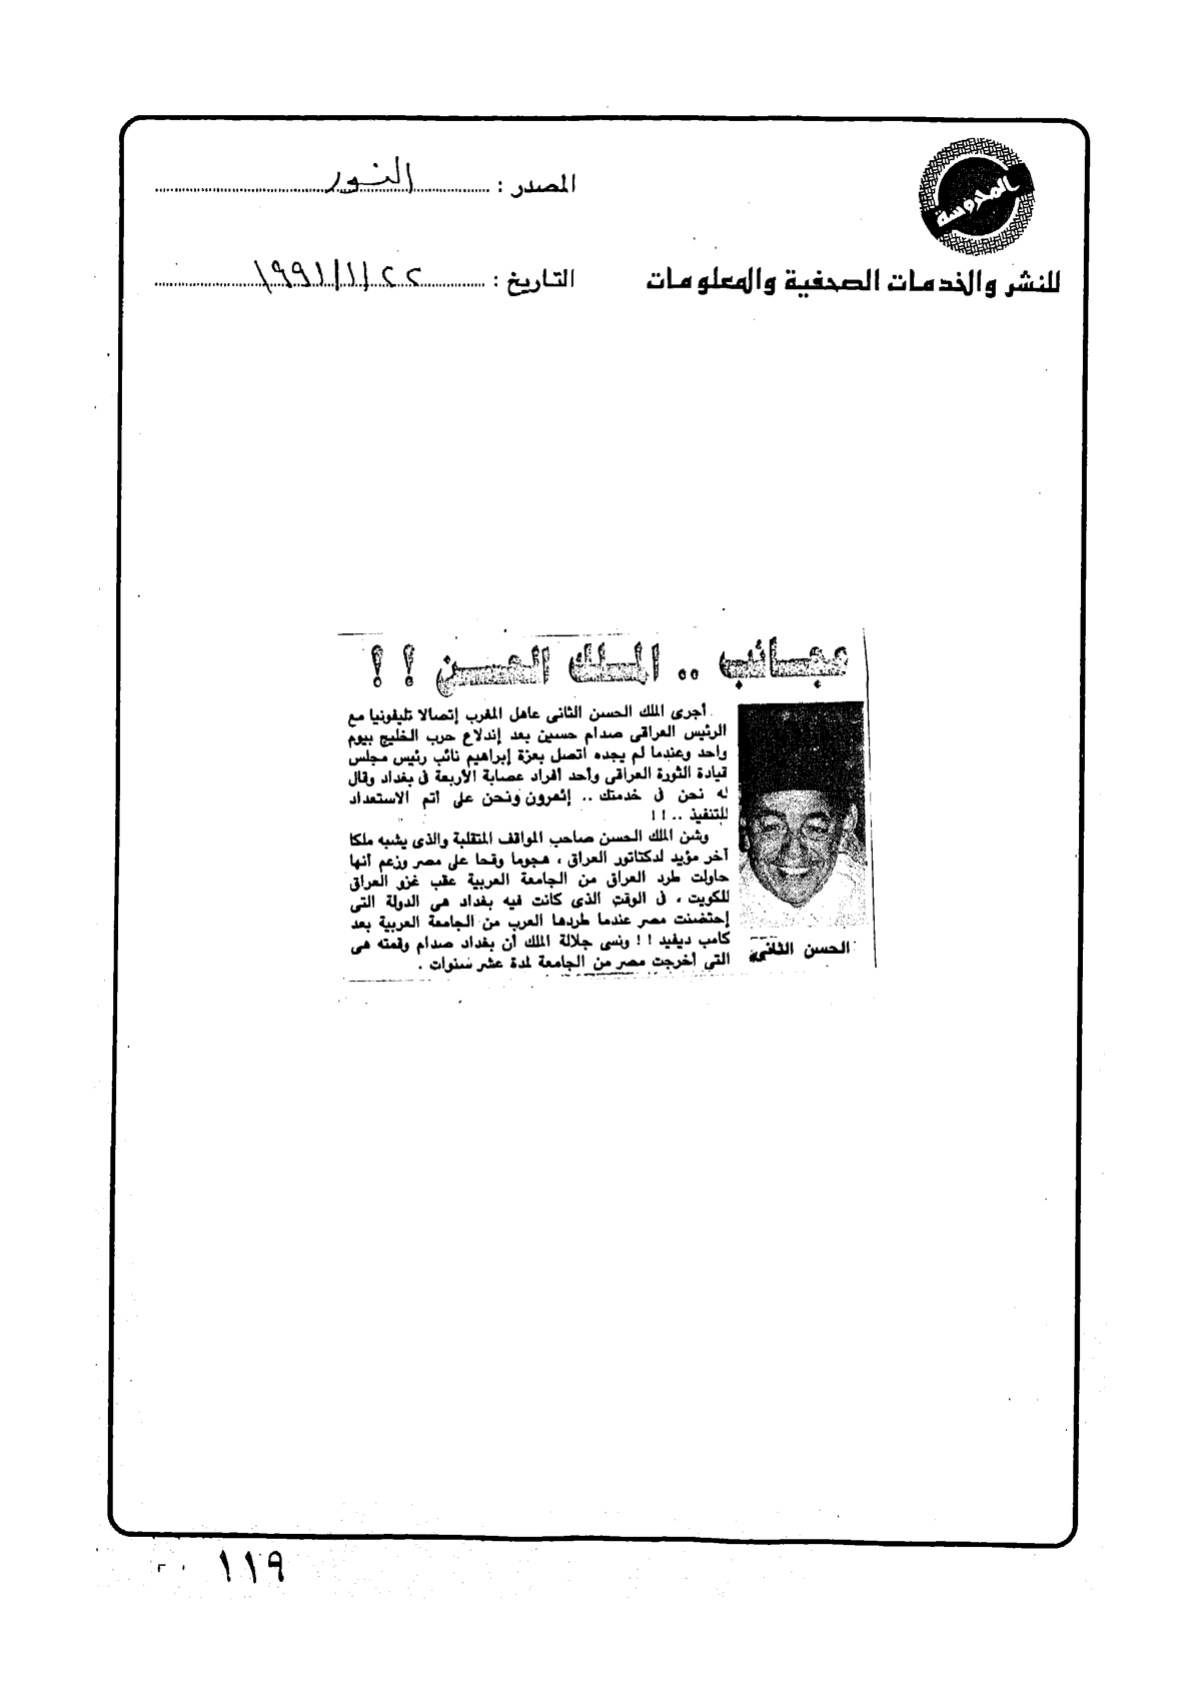 المحروسة
للنشر والخدمات الصحفية والمعلومات
المصدر : النور
التاريخ : ٢٢/١/١٩٩١
عجائب .. الملك الحسن ! !
أجرى الملك الحسن الثانى عاهل المغرب إتصالا تليفونيا مع
الرئيس العراقى صدام حسين بعد إندلاع حرب الخليج بيوم
واحد وعندما لم يجده اتصل بعزة إبراهيم نائب رئيس مجلس
قيادة الثورة العراقى وأحد أفراد عصابة الأربعة فى بغداد وقال
له نحن فى خدمتك .. إئمرون ونحن على أتم الاستعداد
للتنفيذ .. !!
وشن الملك الحسن صاحب المواقف المتقلبة والذى يشبه ملكا
آخر مؤيد لدكتاتور العراق ، هجوما وقحا على مصر وزعم أنها
حاولت طرد العراق من الجامعة العربية عقب غزو العراق
للكويت ، فى الوقت الذى كانت فيه بغداد هى الدولة التى
إحتضنت مصر عندما طردها العرب من الجامعة العربية بعد
كامب ديفيد !! ونسى جلالة الملك أن بغداد صدام وقمته هى
التى أخرجت مصر من الجامعة لمدة عشر سنوات .
الحسن الثانى
١١٩